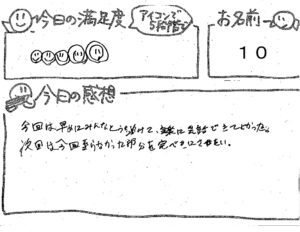 今日の満足度
アイコンで5段階で
お名前
10
今日の感想
今回は早めにみんなとうち溶けて、楽に会話できてよかった。
次回は今回足りなかった部分を完ぺきにさせたい。